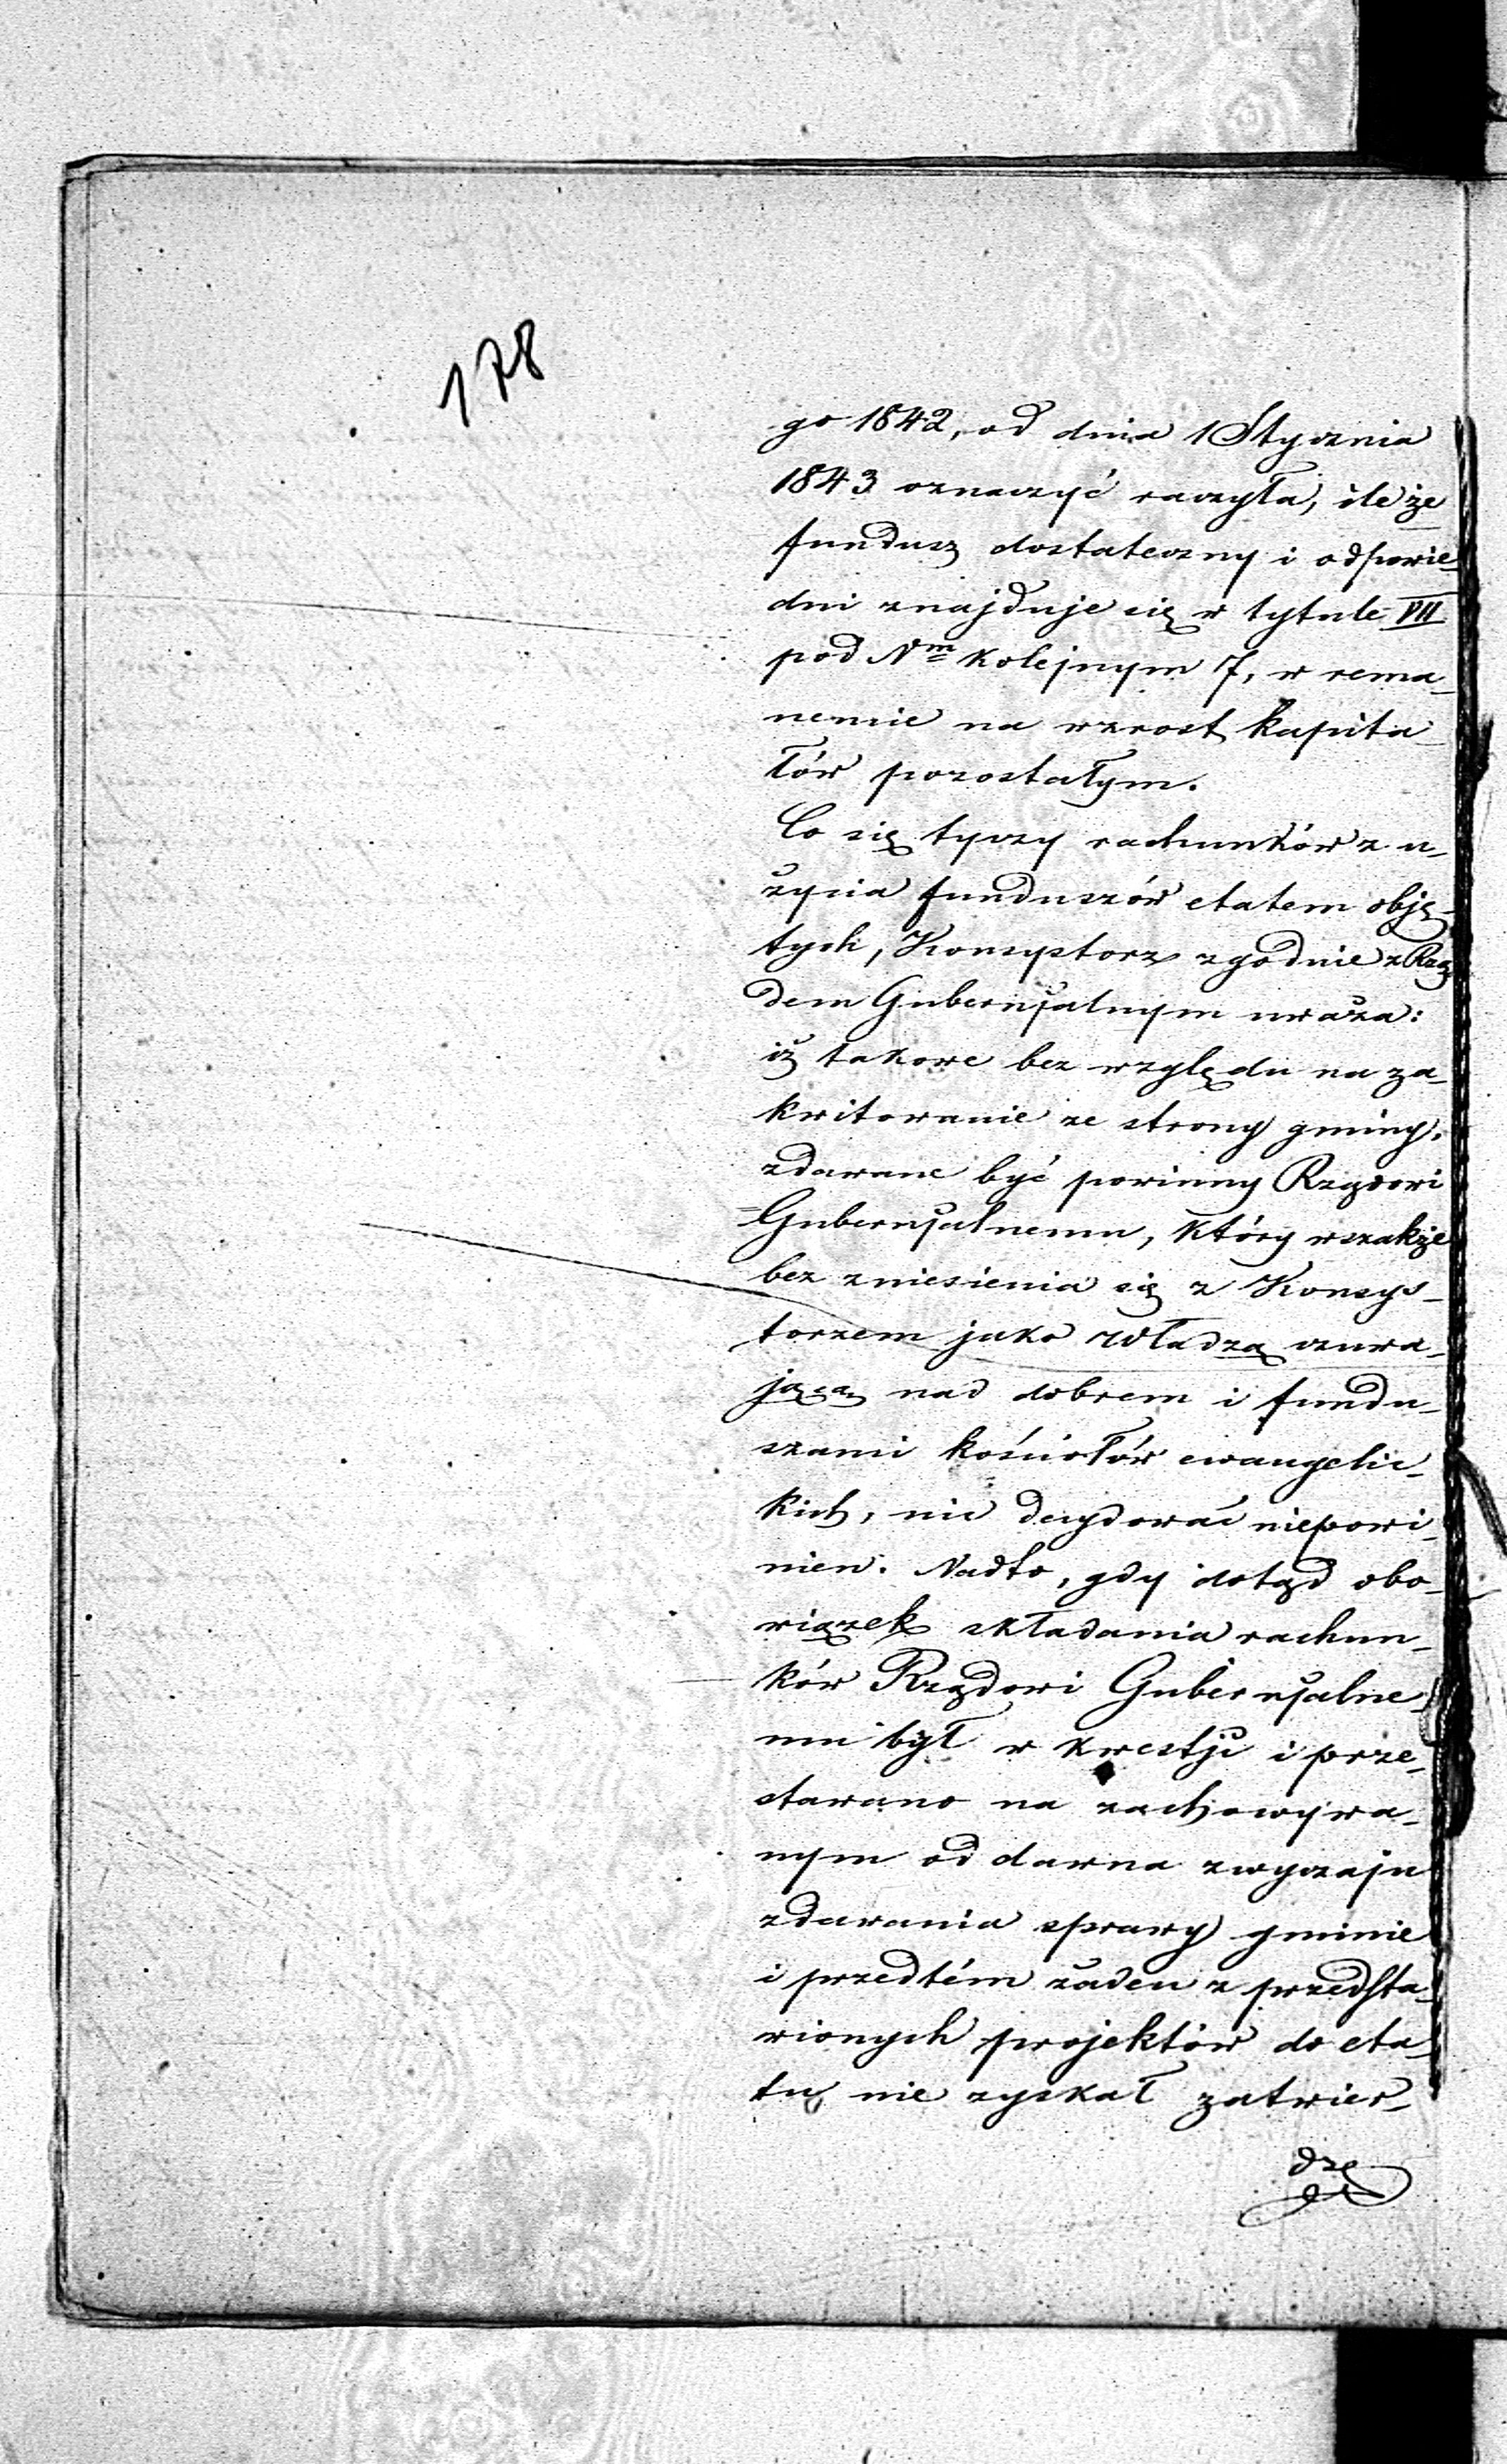 178
go 1842, od dnia 1 Stycznia
1843 oznaczyć raczyła, ile że
fundusz dostateczny i odpowie-
dni znajduje się w tytule VII
pod Nm kolejnym 7, w rema-
nencie na wzrost kapita-
łów pozostałym.
Co się tyczy rachunków z u-
życia funduszów etatem obję-
tych, Konsystorz zgodnie z Rzą-
dem Gubernjalnym uważa:
iż takowe bez względu na za-
kwitowanie ze strony gminy,
zdawane być powinny Rządowi
Gubernjalnemu, który wszakże
bez zniesienia się z Konsys-
torzem jako Władzą czuwa-
jącą nad dobrem i fundu-
szami kościołów ewangelic-
kich, nic decydować niepowi-
nien. Nadto, gdy dotąd obo-
wiązek składania rachun-
ków Rządowi Gubernjalne-
mu był w kwestji i prze-
stawano na zachowywa-
nym od dawna zwyczaju
zdawania sprawy gminie
i przedtém żaden z przedsta-
wionych projektów do eta-
tu nie zyskał zatwier-
dze